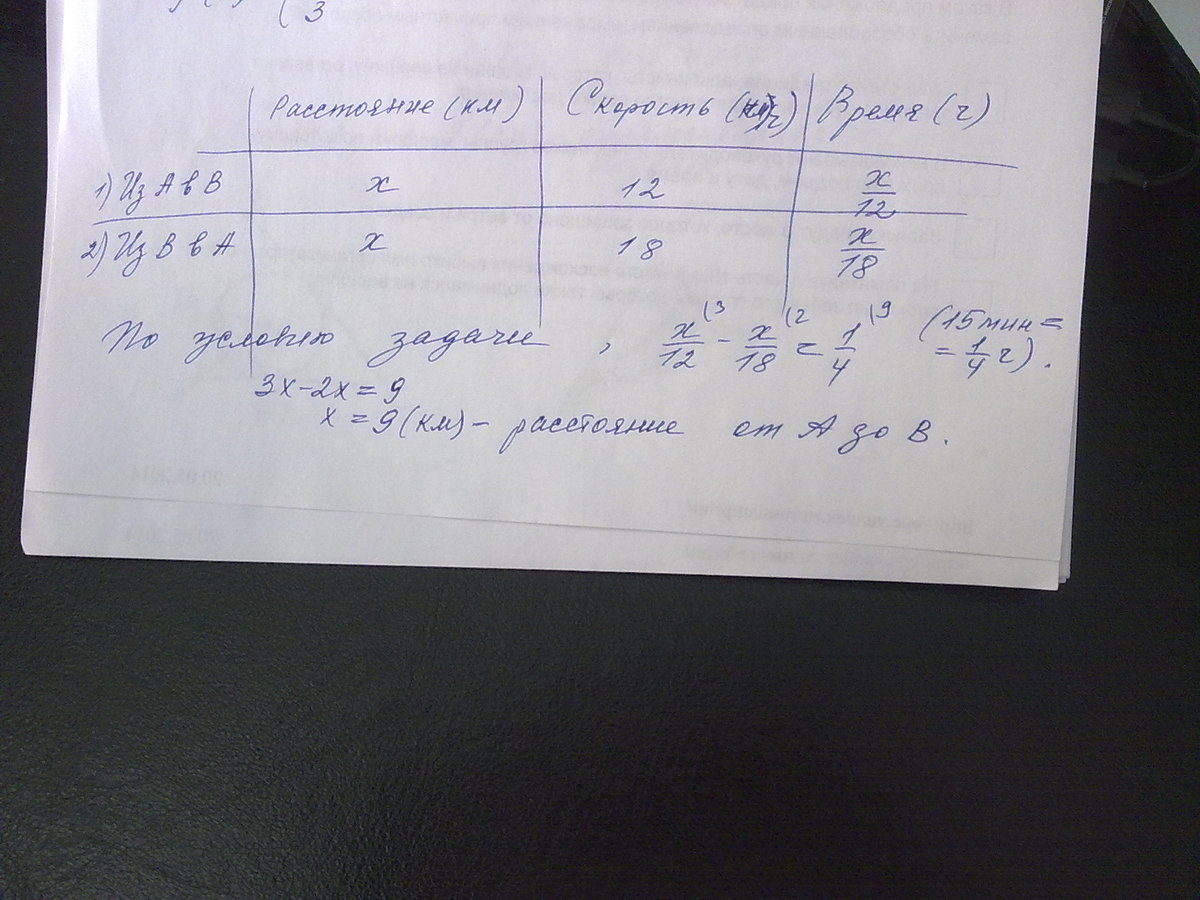 3
Расстояние (км) Скорость (км/ч) Время (ч)
1) Из А в В x 12 x/12
2) Из В в А x 18 x/18
По условию задачи , x/12 (3 - x/18 (2 = 1/4 (9 (15 мин =
= 1/4 ч).
3x-2x=9
x=9(км)- расстояние от А до В.